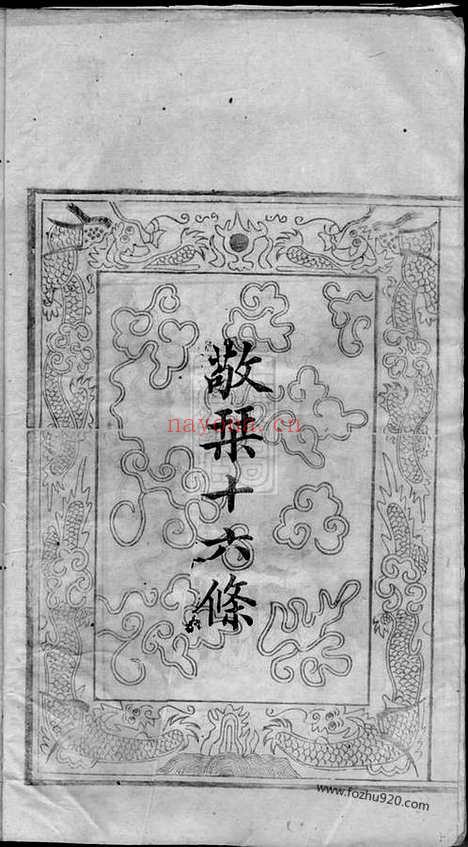 敬栞十六條
nayona.cn
www.fozhu920.com